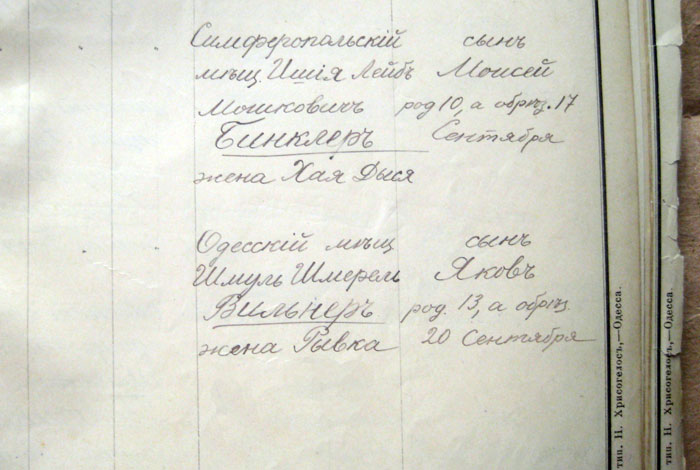 Симферопольскій сынъ
мѣщ. Ишія Лейбъ Моисей
Мошковичъ род 10, а обрѣз. 17
Бинклеръ Сентября
жена Хая Дыся
Одесскій мѣщ сынъ
Шмуль Шмерель Яковъ
Вильнеръ род. 13, а обрѣз.
жена Рывка 20 Сентября
тип. Н. Хрисогелосъ,—Одесса.
тип. Н. Хрисогелосъ,—Одесса.